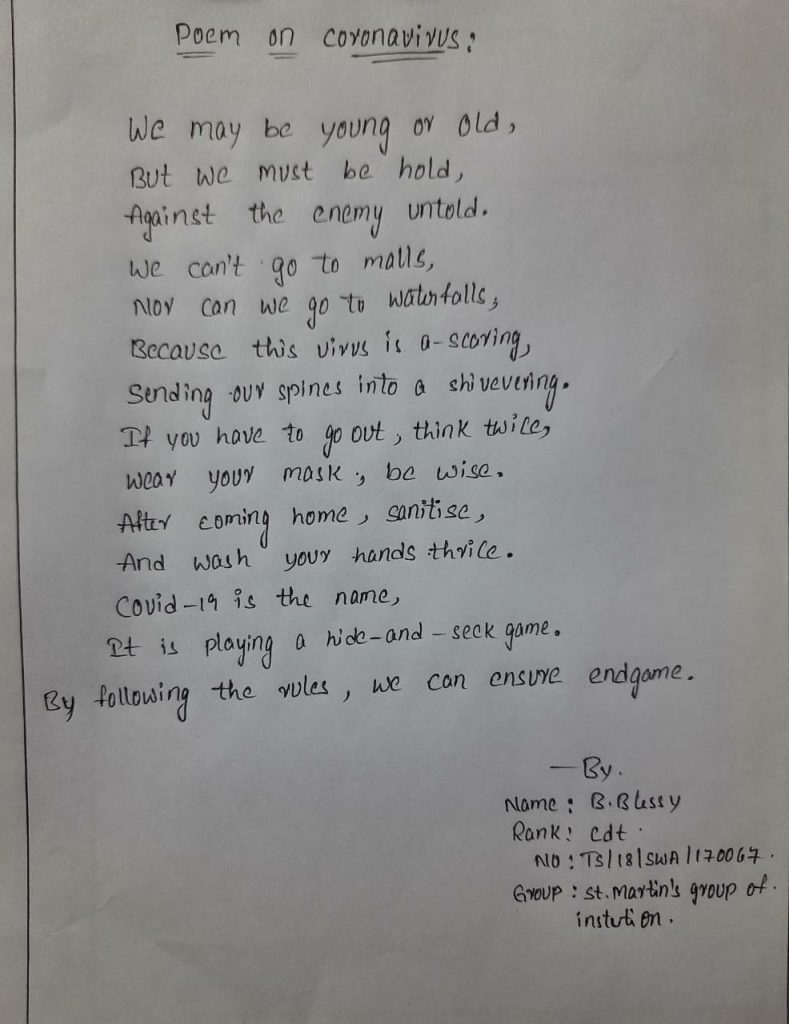 Poem on coronavirus:
We may be young or old,
But we must be hold,
Against the enemy untold.
We can't go to malls,
Nor can we go to waterfalls,
Because this virus is a-scaring,
Sending our spines into a shivevering.
If you have to go out, think twice,
Wear your mask, be wise.
After coming home, sanitise,
And wash your hands thrice.
Covid-19 is the name,
It is playing a hide-and-seek game.
By following the rules, we can ensure endgame.
— By.
Name: B. Blessy
Rank: Cdt.
NO: TS/18/SWA/170067.
Group: St. Martin's group of.
instution.